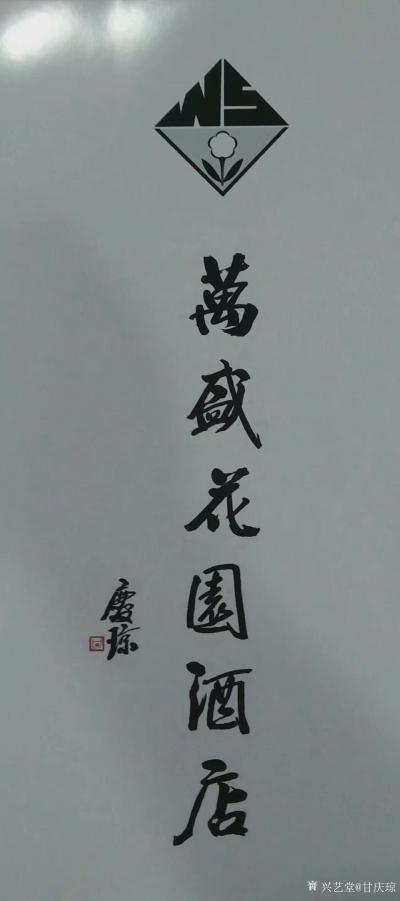 WS
萬盛花園酒店
慶琼
兴艺堂@甘庆琼